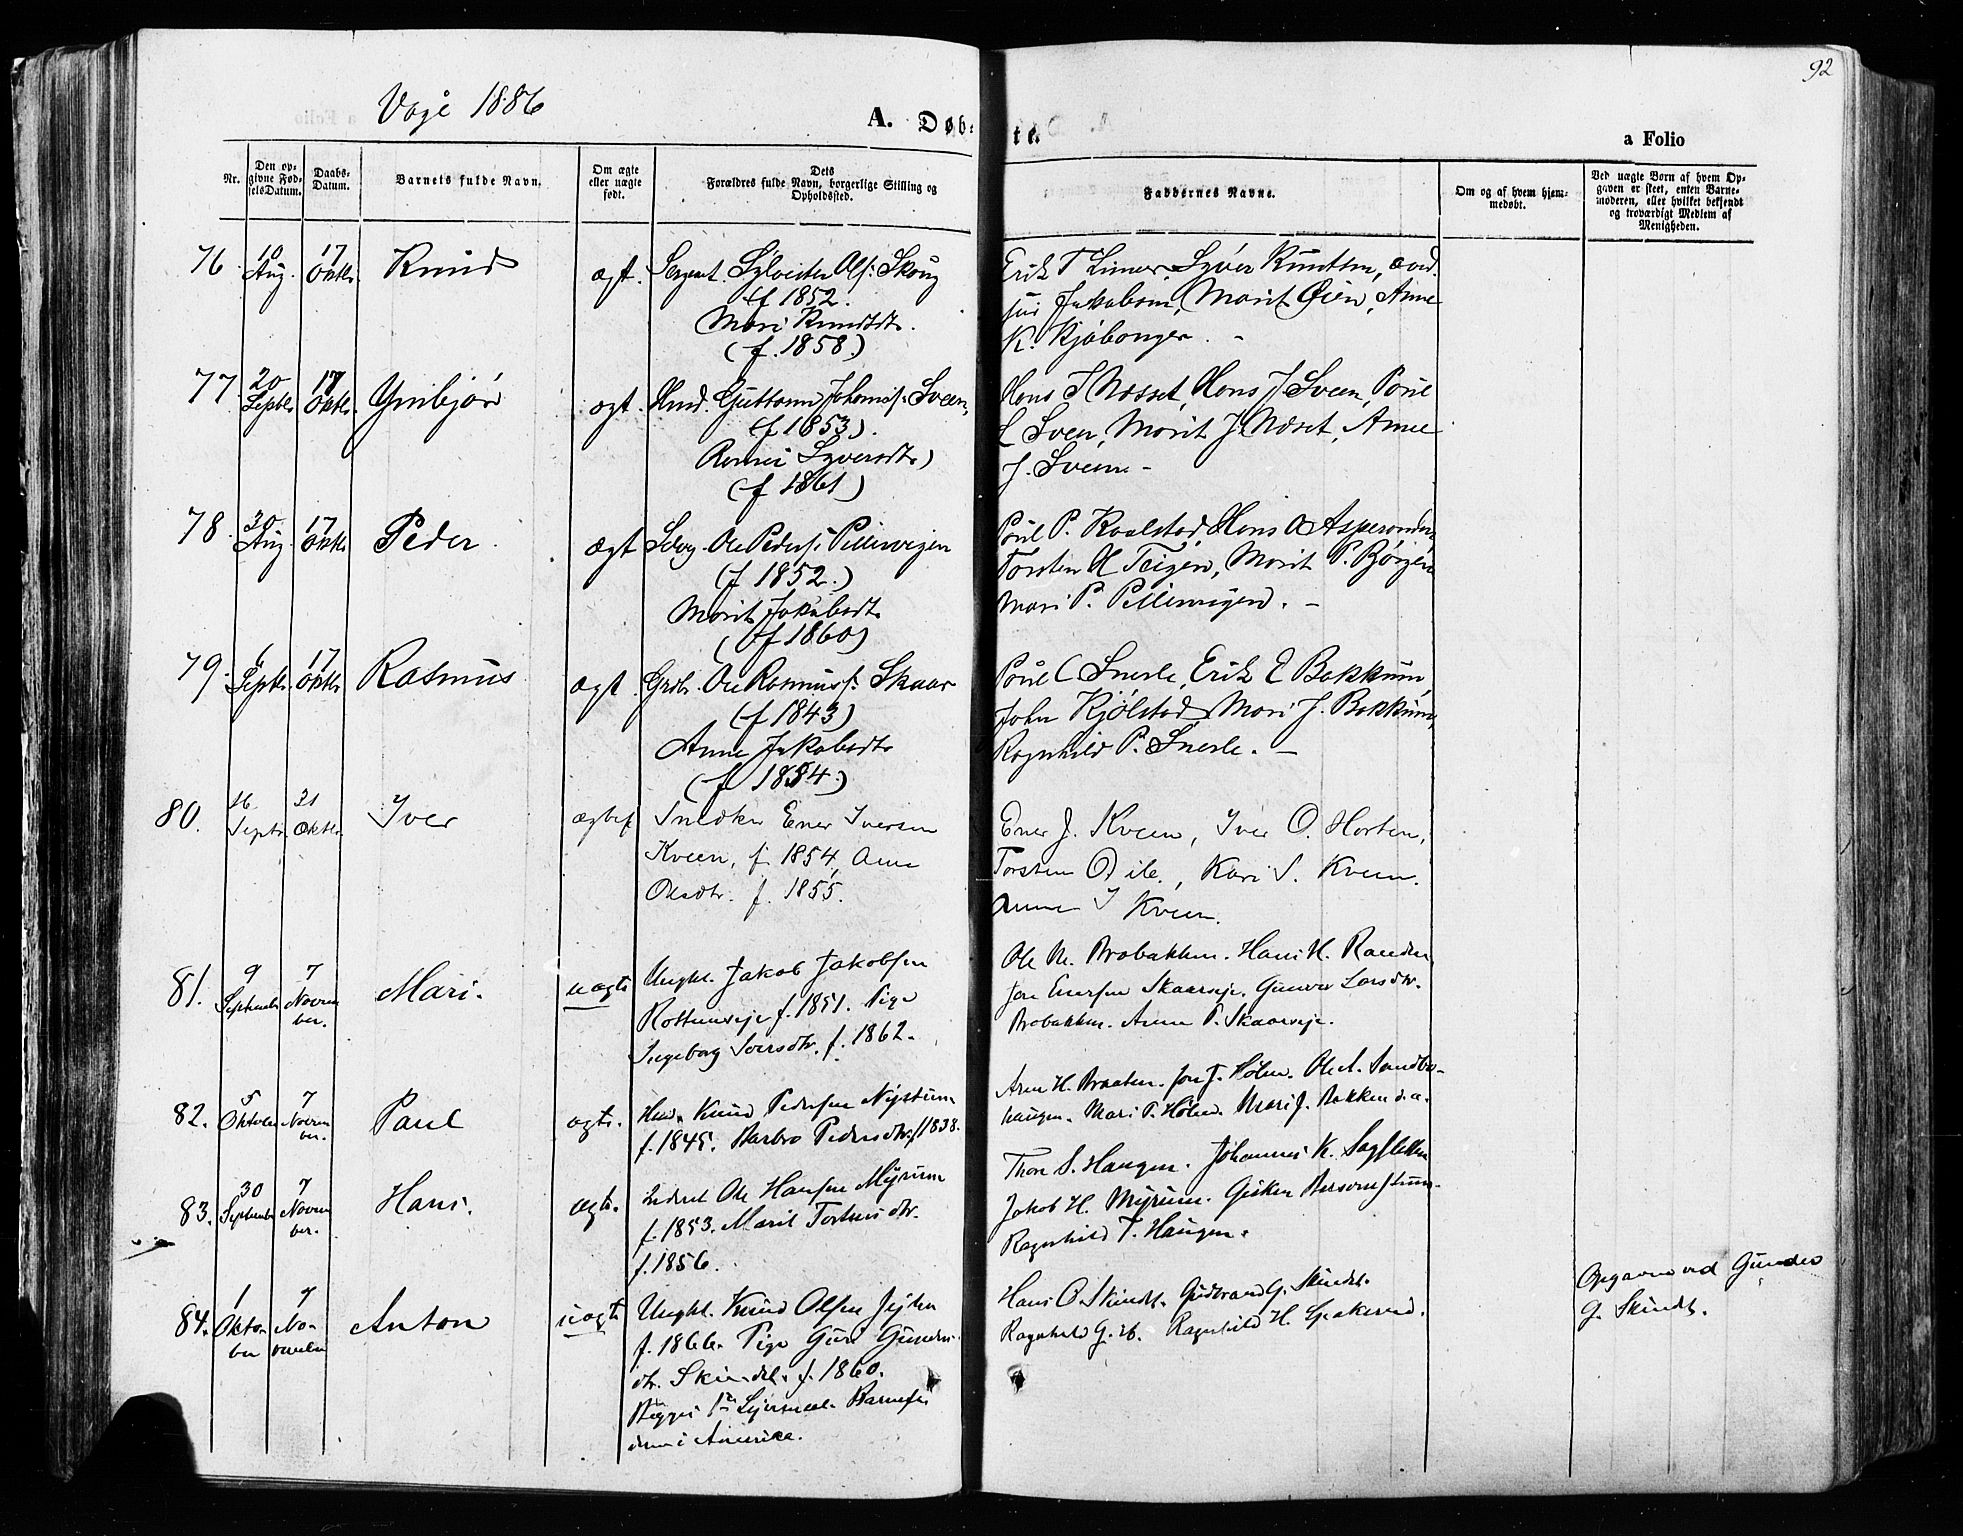 92
Vågå 1886
A. Døb-
te.
a Folio
Nr.
Den op-
givne Fød-
selsDatum.
Daabs-
Datum.
Barnets fulde Navn.
Om ægte
eller uægte
født.
Dets
Forældres fulde Navn, borgerlige Stilling og
Opholdssted.
Faddernes Navne.
Om og af hvem hjem-
medøbt.
Ved uægte Børn af hvem Op-
gaven er skeet, enten Barne-
moderen, eller hvilket bekjendt
og troværdigt Medlem af
Menigheden.
76. 10 Aug. 17 Oktbr. Knud ægt. Sergent. Sylvester Ols: Skoug
(f 1852.
Mari Knudsdtr.
(f. 1858.)
Erik T Syver Knudsen,
Jakobsen, Marit Øien, Anne
K. Kjøbonger. -
77 20 Septbr 17 Oktbr. Ymbjør ægt. Hmd. Guttorm Johannesf. Sveen,
(f 1853).
Syversdtr)
(f 1861)
Hans Nosset, Hans J. Sveen, Poul
L Sveen, Marit J. Noset, Anne
J. Sveen -
78. 30 Aug. 17 Oktbr Peder. ægt Selvg. Ole Peders: Pillervigen
(f 1852.)
Marit Jakobsdtr
(f 1860)
Poul P. Kvalstad, Hans O
Torsten H Teigen, Marit P. Bjørgen
Mari P. Pillervigen. -
79. 6 Septbr. 17 Oktbr Rasmus ægt. Grdbr. Ole Rasmusf: Skaar
(f 1843)
Anne Jakobsdtr
(f 1854.)
Poul C Snerle, Erik E Bakkum,
John Kjølstad, Mari J. Bakkum,
Ragnhild P. Snerle. -
80. 16 Septbr. 31 Oktbr. Iver ægtef Snedker Ener Iversen
Kveen, f. 1854, Anne
Olsdtr. f. 1855.
Ener J. Kveen, Iver O. Horten,
Torsten O ib., Kari S. Kveen.
Anne I Kveen.
81. 9 September 7 Novem
ber. Mari. uægte Ungkl. Jakob Jakobsen
f. 1851. Pige
Ingeborg Iversdtr. f. 1862.
Ole N. Brobakken. Hans H. Randen
Jon Enersen Skaarseje. Gunver Larsdtr.
Brobakken. Anne P. Skaarseje.
82. 5 Oktober 7 Novem
ber. Paul ægte. Hmd. Knud Pedersen Nystuen
f. 1845. Barbro Pedersdtr. f 1838.
Arne H. Braaten. Jon J. Holen. Ole A. Sandbu-
haugen. Mari P. Holen. Mari J. Bakken d.a.
83. 30 September 7 Novem
ber. Hans. ægte. Inderst Ole Hansen Myrum
f. 1853. Marit Torstensdtr.
f. 1856.
Thore S. Haugen. Johannes K. Sagfletten
Jakob H. Myrum.
Ragnhild T. Haugen.
84. 1 Okto-
ber 7 No-
vember Anton uægte Ungkl. Knud Olsen
f. 1866. Pige Guri Gunders-
dtr. Skindel. f. 1860.
Begges 1ste Leiersmaal. Barnefa-
deren i Amerika.
Hans O. Skindl. Gudbrand G. Skindel.
Ragnhild G. ib. Ragnhild H.
Opgaven ved Gunder
G. Skindl.